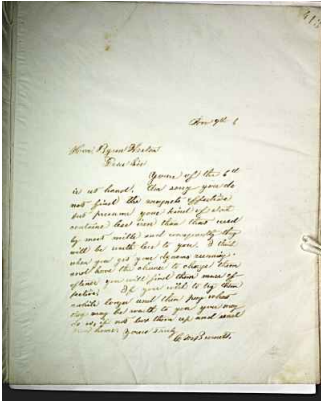 413
Nov 9th
Hon. Byron Weston
Dear Sir
Yours of the 6th
is at hand. Am sorry you do
not find the magnets effective
but presume your kind of stock
contains less iron than that used
by most mills and consequently they
will be worth less to you. I think
when you get your dynamo running
and have the chance to charge them
oftener you will find them more ef-
fective. If you wish to try them
awhile longer and then pay what
they may be worth to you you may
do so, if not box them up and send
them home. Yours truly